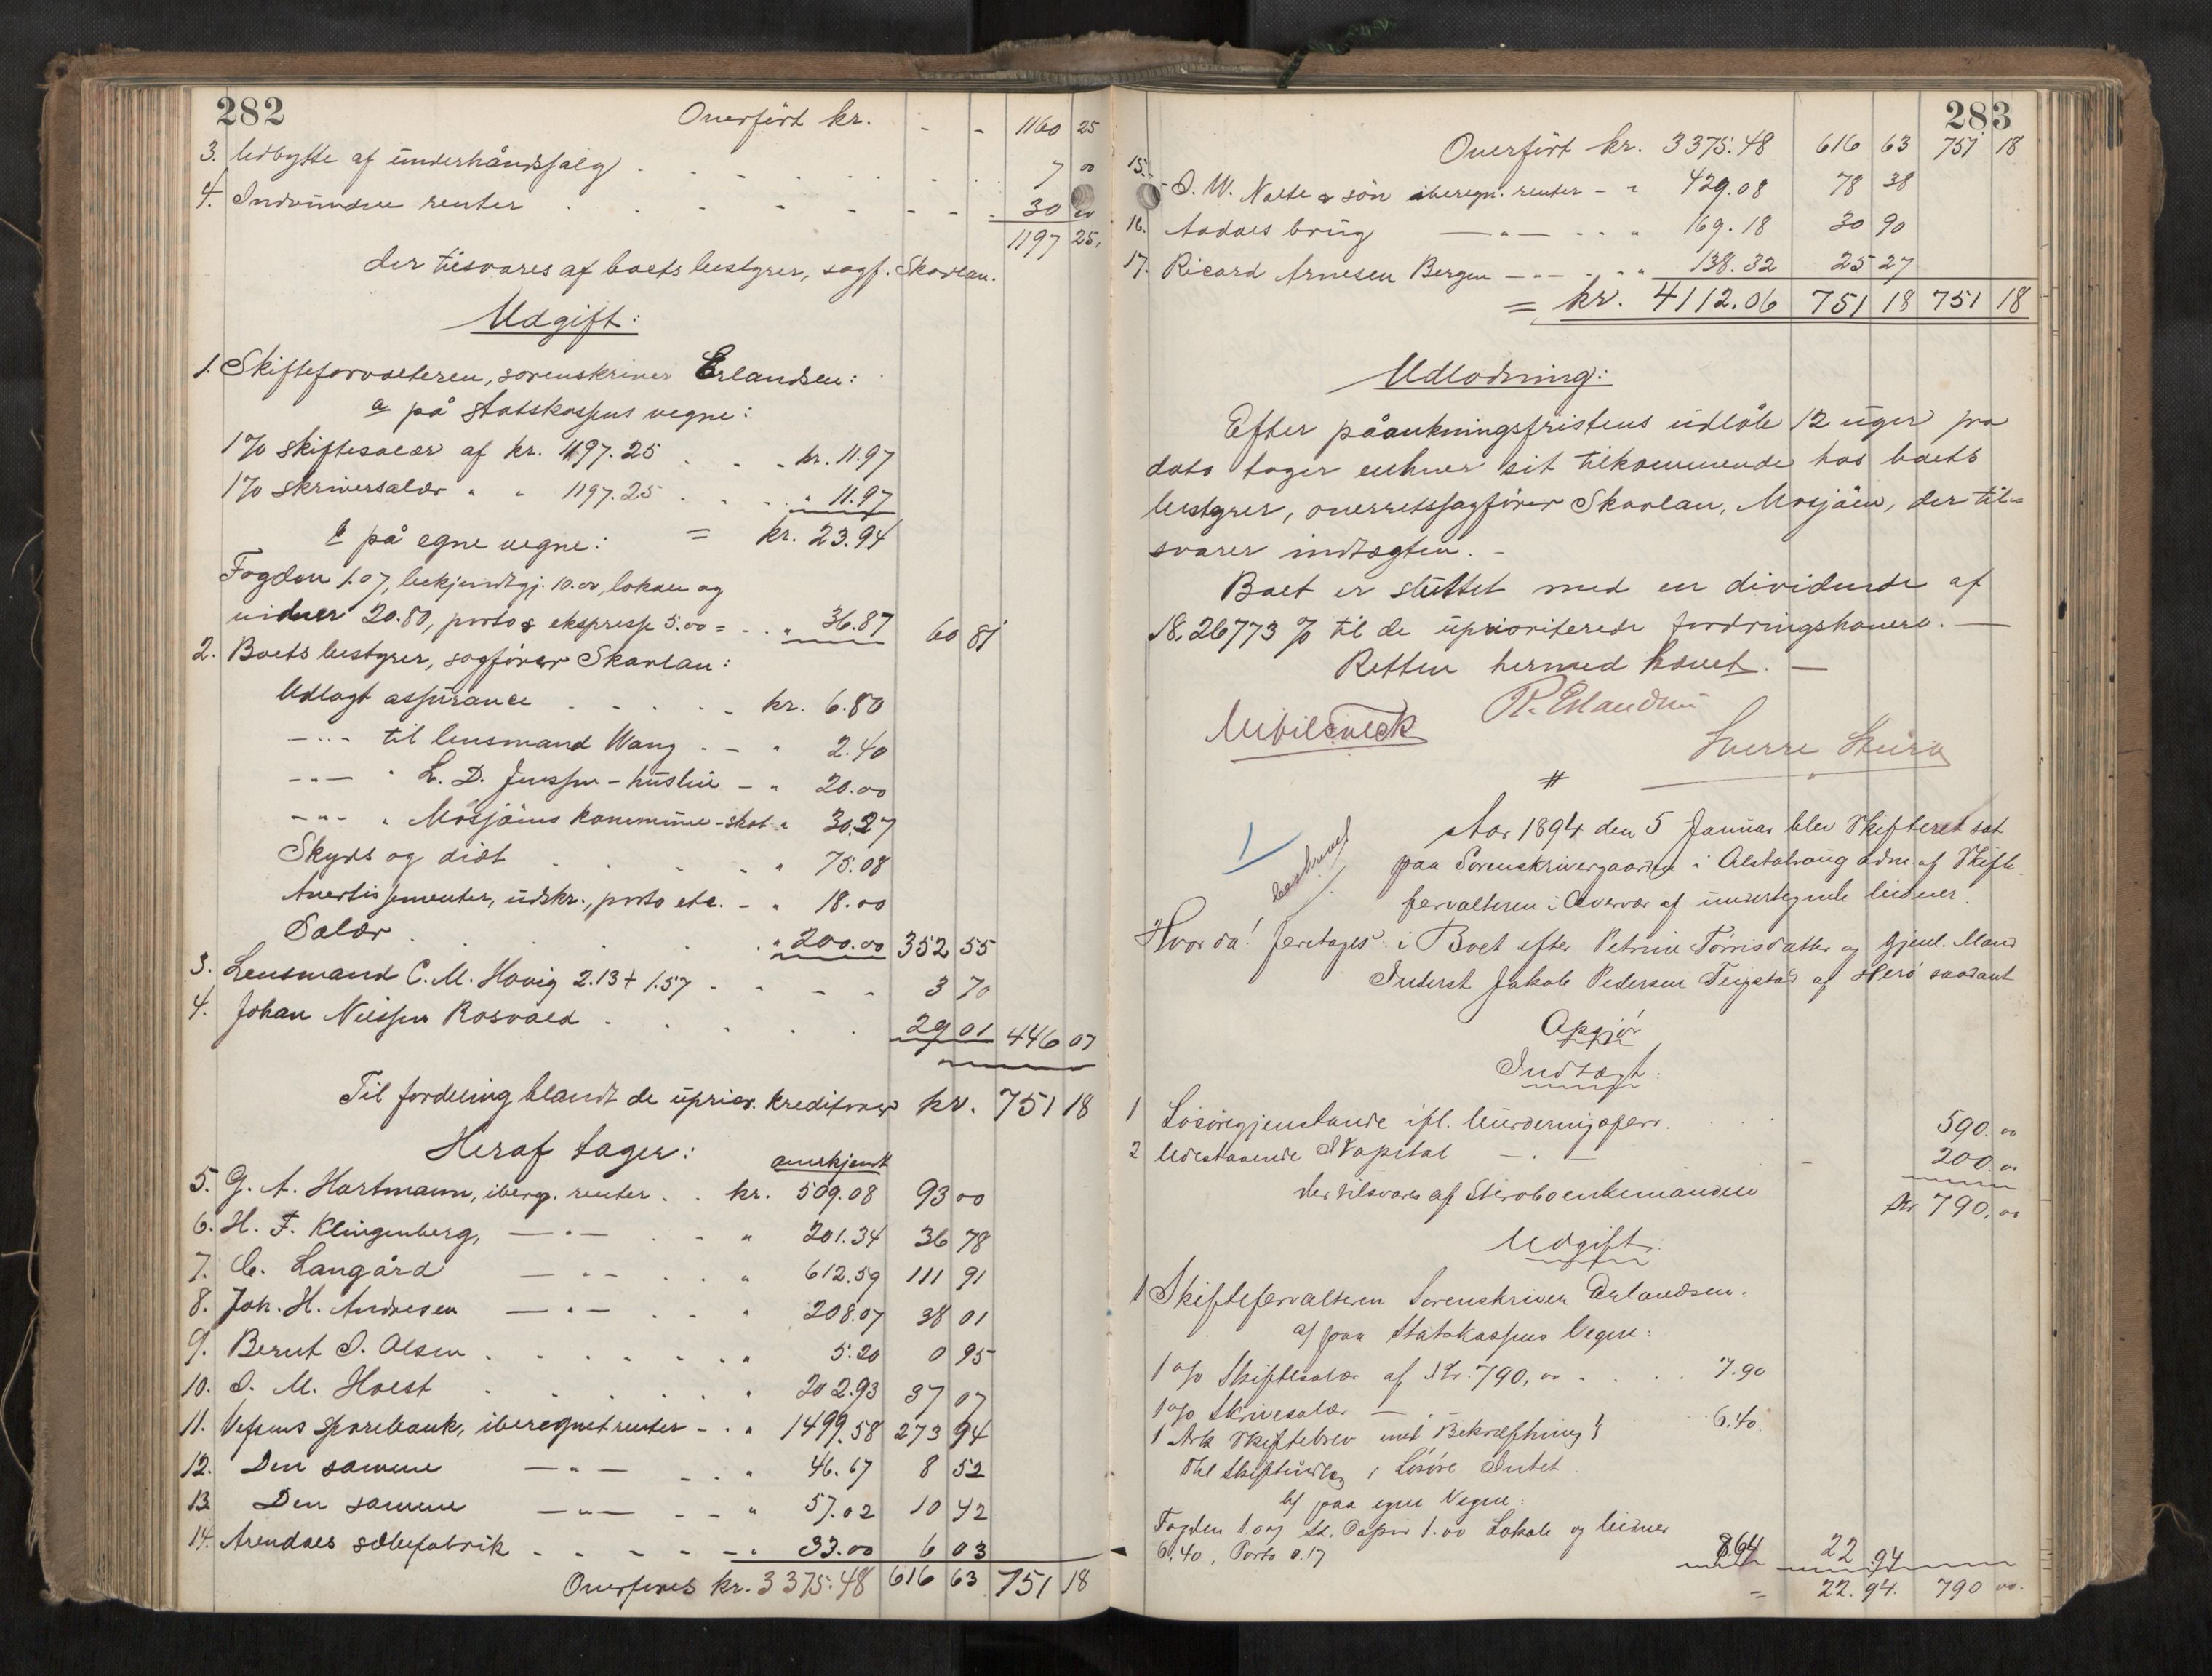 282
Overført kr. - - 1160 25
3. Udbytte af underhåndssalg . . . . . 7 00
4. Indvundne renter . . . . . 30 00
1197 25
der tilsvares af boets bestyrer, sagf. Skavlan.
Udgift:
1. Skifteforvalteren, sorenskriver Erlandsen:
a på statskassens vegne:
1 % skiftesalær af kr. 1197.25 . . . kr. 11.97
1 % skriversalær " " 1197.25 . . . " 11.97
b på egne vegne: = kr. 23.94
Fogden 1.07, bekjendtgj. 10.00, lokale og
vidner 20.80, porto & ekspresse 5.00 = . . " 36.87 60 81
2. Boets bestyrer, sagfører Skavlan:
Udlagt assurance . . . . . kr. 6.80
-"- til lensmand Wang . - " 2.40
-"- " L. D. Jenssen - husleie - " 20.00
-"- " Mosjøens kommune-skat " 30.27
Skyds og diæt . . . . " 75.08
Avertissementer, udskr., porto etc. - " 18.00
Salær . . . . . " 200.00 352 55
3. Lensmand C. M. Havig 2.13 + 1.57 . - - - 3 70
4. Johan Nilssen Rosvold . . . . 29 01 446 07
Til fordeling blandt de uprior. kreditorer kr. 751 18
Heraf tager: anerkjendt
5. G. A. Hartmann, ibereg. renter . . kr. 509.08 93 00
6. H. F. Klingenberg, -"- . - " 201.34 36 78
7. C. Langård -"- . . " 612.59 111 91
8. Joh. H. Andresen -"- . - " 208.07 38 01
9. Bernt I. Olsen . . . . . " 5.20 0 95
10. I. M. Holst . . . . . " 202.93 37 07
11. Vefsens sparebank, iberegnet renter - . " 1499.58 273 94
12. Den samme -"- - . " 46.67 8 52
13 Den samme -"- - - " 57.02 10 42
14. Arendals sæbefabrik - - - - - " 33.00 6 03
Overføres kr. 3375.48 616 63 751 18
283
Overført kr. 3375.48 616 63 751 18
15. I. W. Nolte & søn iberegn. renter - " 429.08 78 38
16. Aadals brug -"- . . " 169.18 30 90
17. Ricard Arnesen Bergen -"- . . " 138.32 25 27
= kr. 4112.06 751 18 751 18
Udlodning:
Efter påankningsfristens udløb 12 uger fra
dato tager enhver sit tilkommende hos boets
bestyrer, overretssagfører Skavlan, Mosjøen, der til-
svarer indtægten. -
Boet er sluttet med en dividende af
18,26773 % til de uprioriterede fordringshavere. -
Retten hermed hævet. -
R. Erlandsen
Sverre
#
Aar 1894 den 5 Januar blev Skifteret sat
paa Sorenskrivergaarden i Alstahaug adm af Skifte
forvalteren i Overvær af undertegnede Vidner.
beskrevet
Hvorda! foretoges i Boet efter Petrine Tørrisdatter og gjenl. Mand
Inderst Jakob Pedersen Teigstad af Herø saadant
Opgjør
Indtægt:
1 Løsøregjenstande ifl. Vurderingsforr. . . . 590.00
2 Udestaaende Kapital - . - - 200.00
der tilsvares af Sterboenkemanden Kr 790,00
Udgift:
1 Skifteforvalteren Sorenskriver Erlandsen:
a/ paa Statskassens Vegne:
1 o/o Skiftesalær af Kr. 790,00 . . . . 7.90
1 o/o Skrivesalær - . -
1 Ark Skiftebrev med Bekræftning } . . . 6.40.
Thl Skifteudlæg i Løsøre Intet.
b/ paa egne Vegne:
Fogden 1.07 St. Papir 1.00 Lokale og Vidner
6.40, Porto 0.17 8.64 22 94
= 22.94. 790 00.